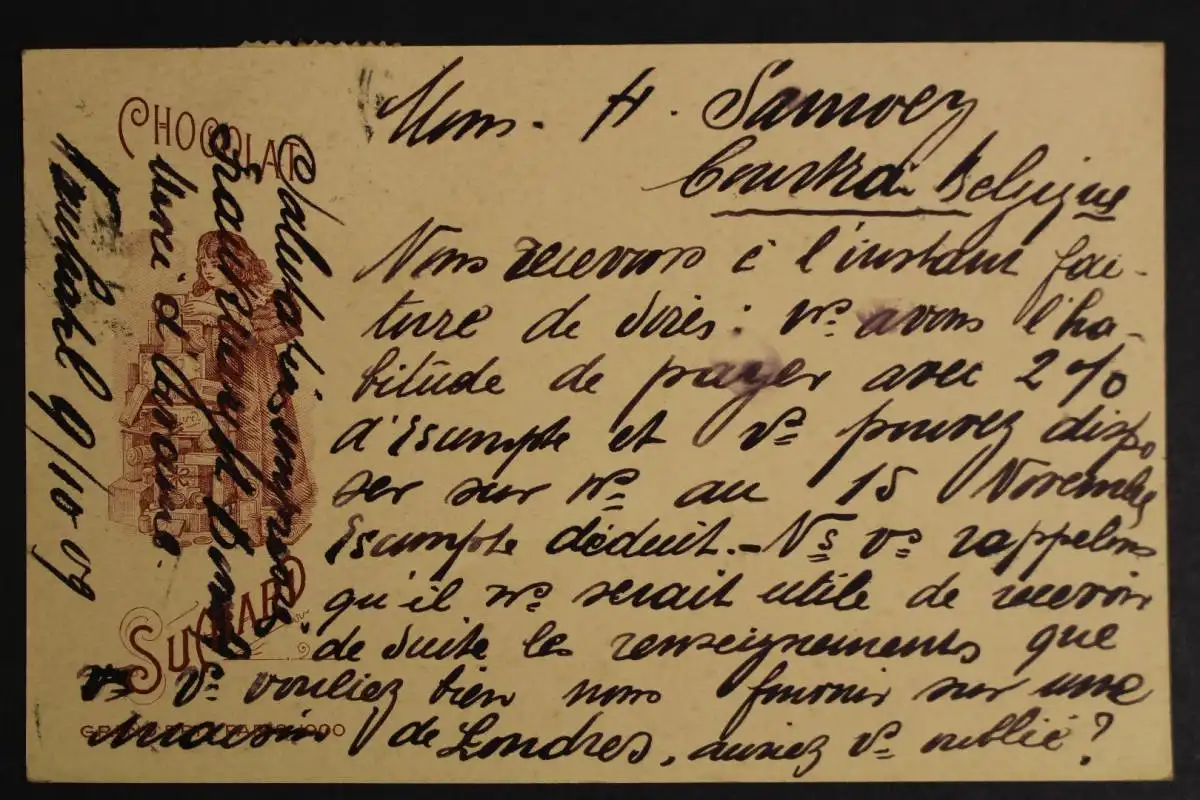 CHOCOLAT
SUCHARD
GRAND PRIX PARIS 1900
Mons. H. Samoey
Courtrai Belgique
Nous recevons à l'instant fac-
ture de Soies: ns avons l'ha-
bitude de payer avec 2 %
d'Escompte et vs pouvez dispo
ser sur ns au 15 Novembre
Escompte déduit. — Ns vs rappelons
qu'il ns serait utile de recevoir
de suite les renseignements que
vs vouliez bien nous fournir sur une
maison de Londres, auriez vs oublié?
Salutations
Merci d'avance
9/10 09